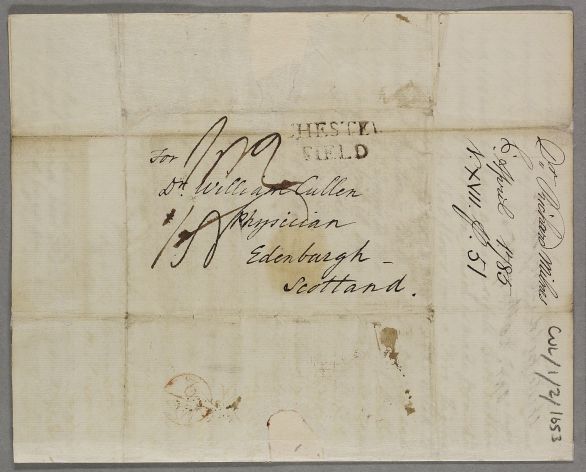 CHESTER
FIELD
For
Dr. William Cullen
Physician
Edenburgh –
Scotland.
Dr. Richard Milnes
April 1785
N. XVII. P. 51
CUL/1/2/1653